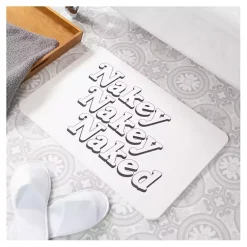 Nakey
Nakey
Naked